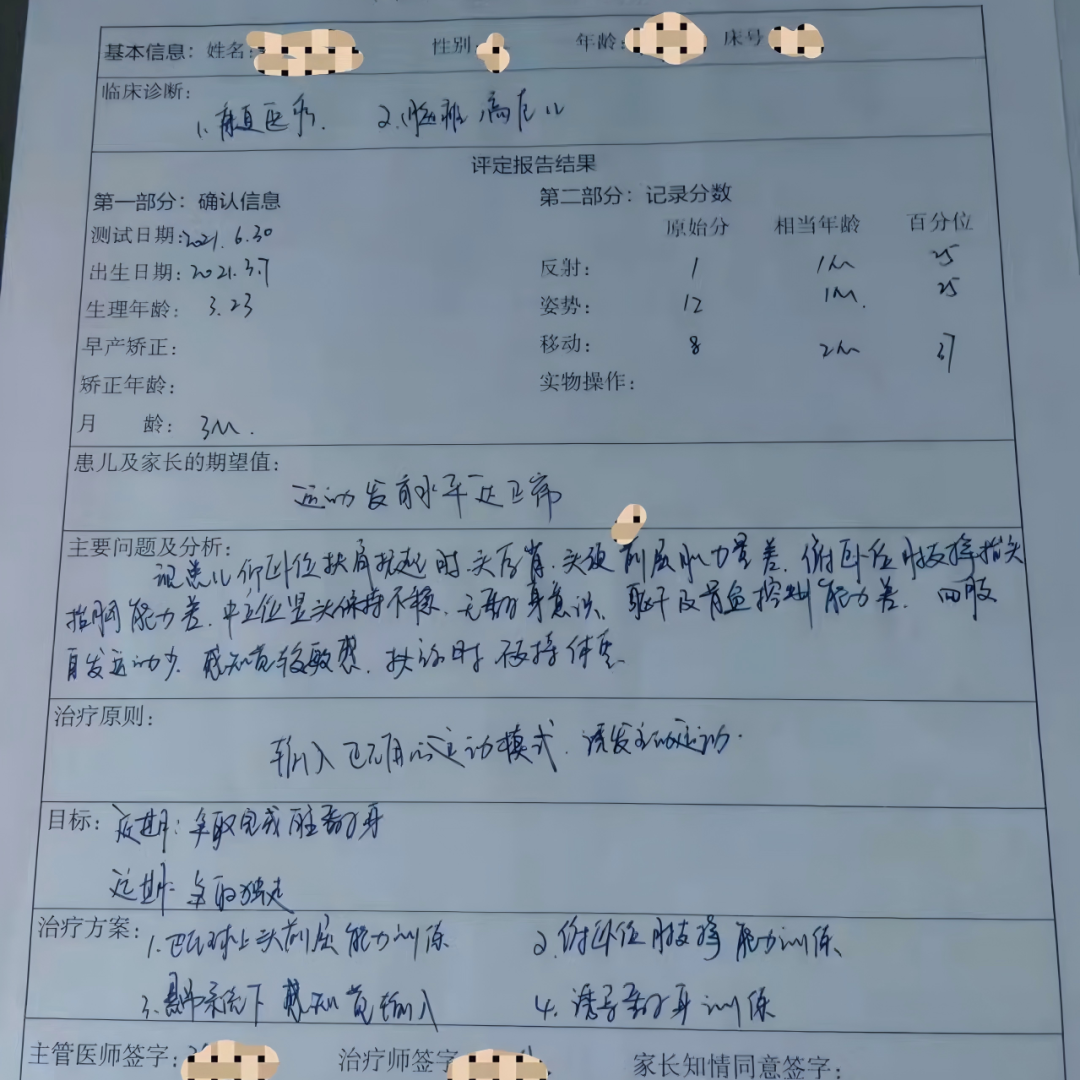 基本信息: 姓名: 性别 年龄: 床号
临床诊断:
1.康复医疗. 2.脑瘫高危儿
评定报告结果
第一部分: 确认信息 第二部分: 记录分数
原始分 相当年龄 百分位
测试日期: 2021.6.30
反射: 1 1m 25
出生日期: 2021.3.7
姿势: 12 1m. 25
生理年龄: 3.23
移动: 8 2m 37
早产矫正:
实物操作:
矫正年龄:
月 龄: 3m.
患儿及家长的期望值:
运动发育水平达正常
主要问题及分析:
患儿仰卧位扶肩拉起时,头后背,头颈前屈肌力量差,俯卧位肘支撑抬头
抬胸能力差,中立位竖头保持不稳,无翻身意识,躯干及骨盆控制能力差,四肢
自发运动少,感知觉较敏感,扶站时不支持体重.
治疗原则:
输入正常的运动模式,诱发主动运动.
目标: 近期: 争取完成主动翻身
远期: 争取独走
治疗方案: 1.巴氏球上头前屈能力训练 2.俯卧位肘支撑能力训练
3.悬吊系统下感知觉输入 4.诱导翻身训练
主管医师签字: 治疗师签字 家长知情同意签字: